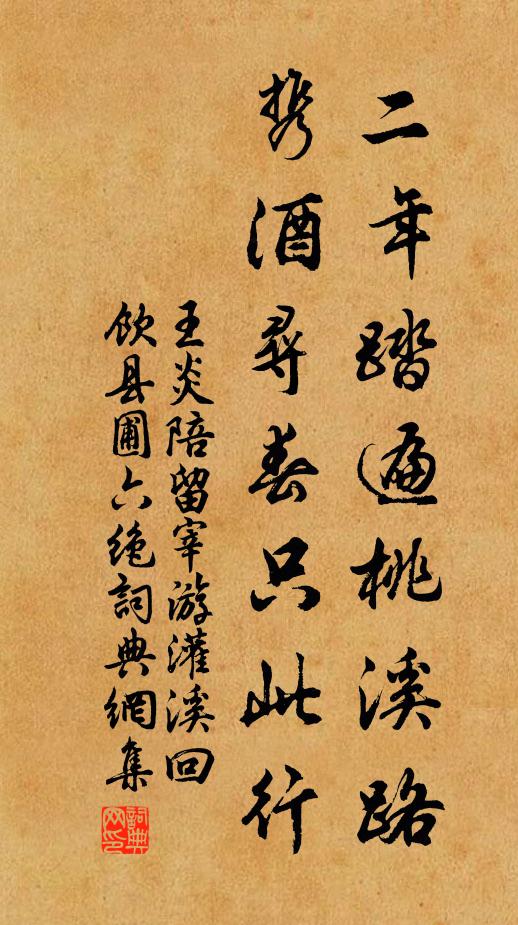 二年踏遍桃溪路
携酒尋春只此行
王炎陪留宰游灌溪回
飲县圃六绝詞典網集
詞典网印